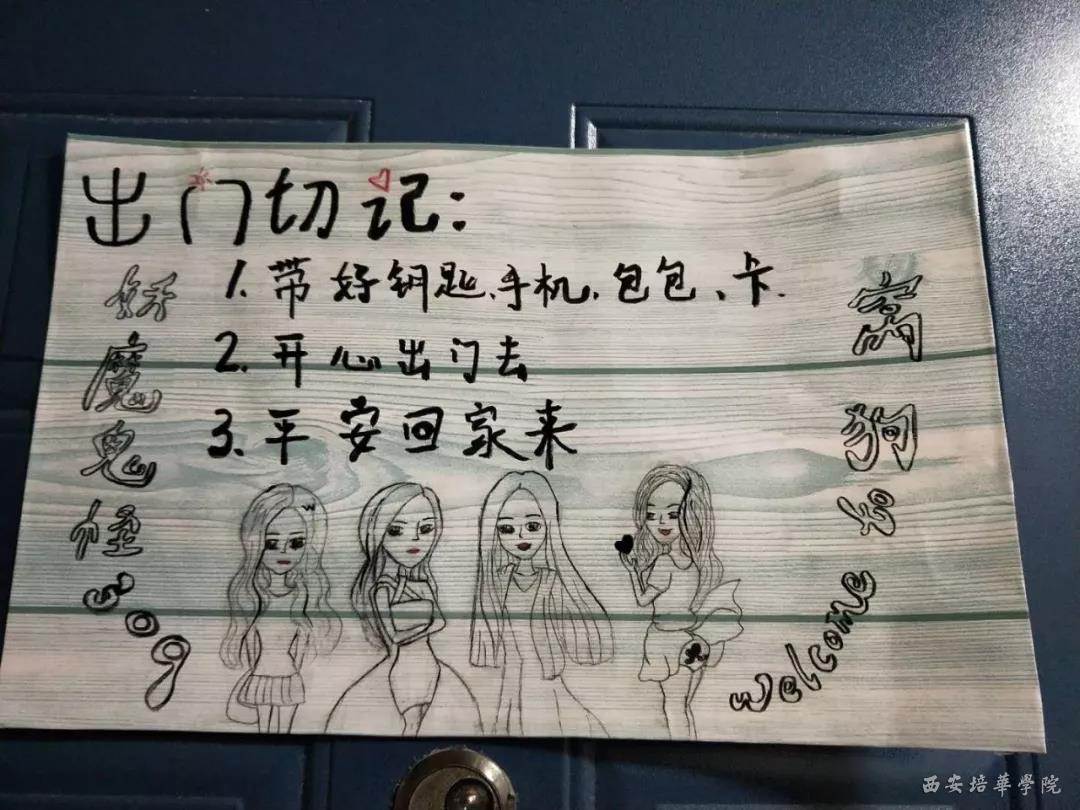 出门切记:
1. 带好钥匙、手机、包包、卡.
2. 开心出门去
3. 平安回家来
妖魔鬼怪509
窝
狗
welcome
西安培華學院